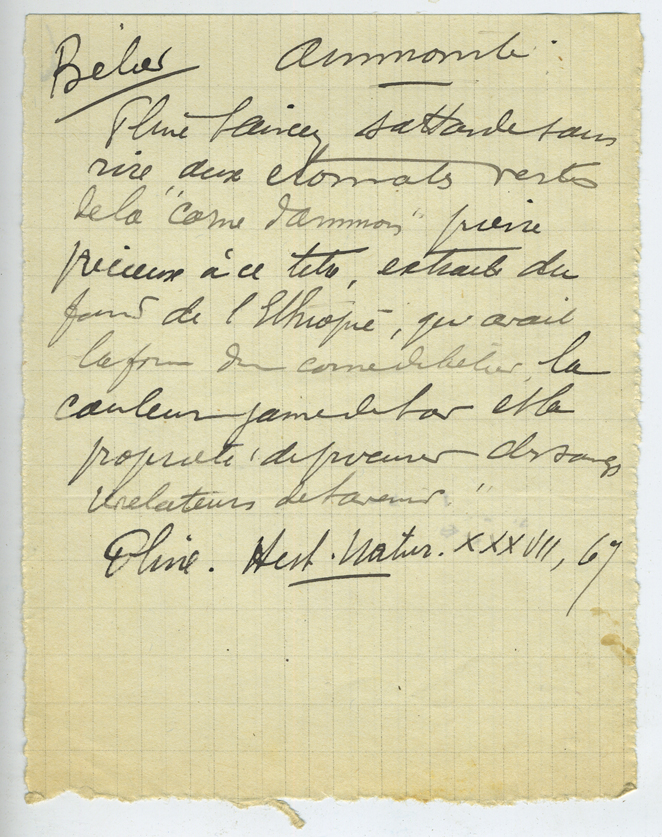 Bélier Ammonite
Pline l'ancien s'attarde sans
rire aux etonnants vertus
de la "corne d'ammon" pierre
précieuse à ce titre, extraite du
fond de l'Ethiopie, qui avait
la forme d'une corne de bélier, la
couleur jaune de l'or et la
propriété "de procurer des songes
révélateurs de l'avenir."
Pline. Hist. Natur. XXXVII, 67